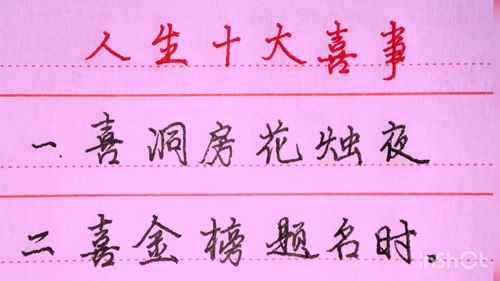 人生十大喜事
一.喜洞房花烛夜
二喜金榜题名时.
InShOt